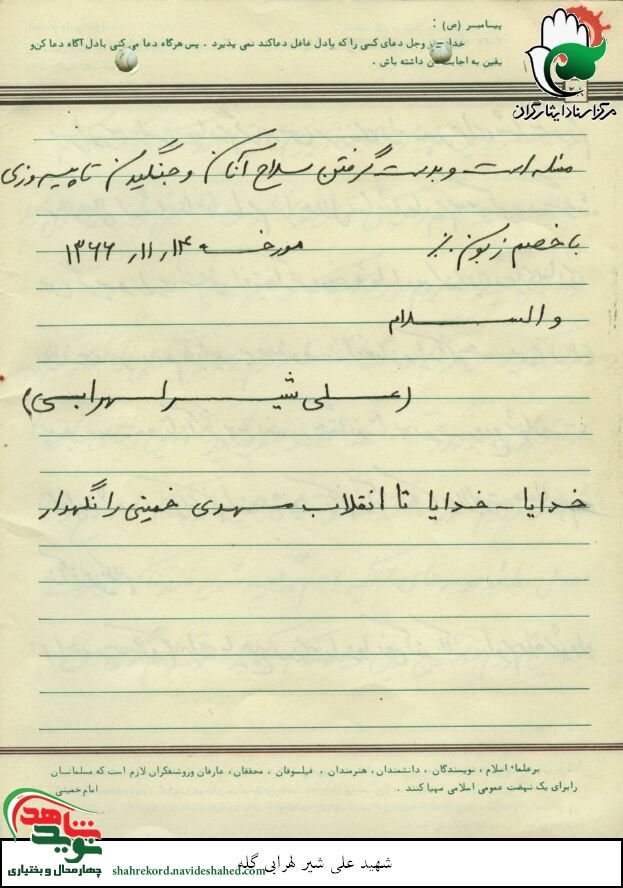 پیامبر (ص) :
خداوند عز وجل دعای کسی را که بادل غافل دعاکند نمی پذیرد . پس هرگاه دعا می کنی بادل آگاه دعا کن و
یقین به اجابت آن داشته باش .
مرکز اسناد ایثارگران
مثله است و بدست گرفتن سلاح آنان و جنگیدن تا پیروزی
با خصم زبون ٪ مورخه ۱۳۶۶/۱۱/۱۴
والسلام
(علی شیر لهرابی)
خدایا - خدایا تا انقلاب مهدی خمینی را نگهدار
برعلما اسلام ، نویسندگان ، دانشمندان ، هنرمندان ، فیلسوفان ، محققان ، عارفان وروشنفکران لازم است که مسلمانان
رابرای یک نهضت عمومی اسلامی مهیا کنند . امام خمینی
نوید شاهد
چهارمحال و بختیاری
shahrekord.navideshahed.com
شهید علی شیر لهرابی گله